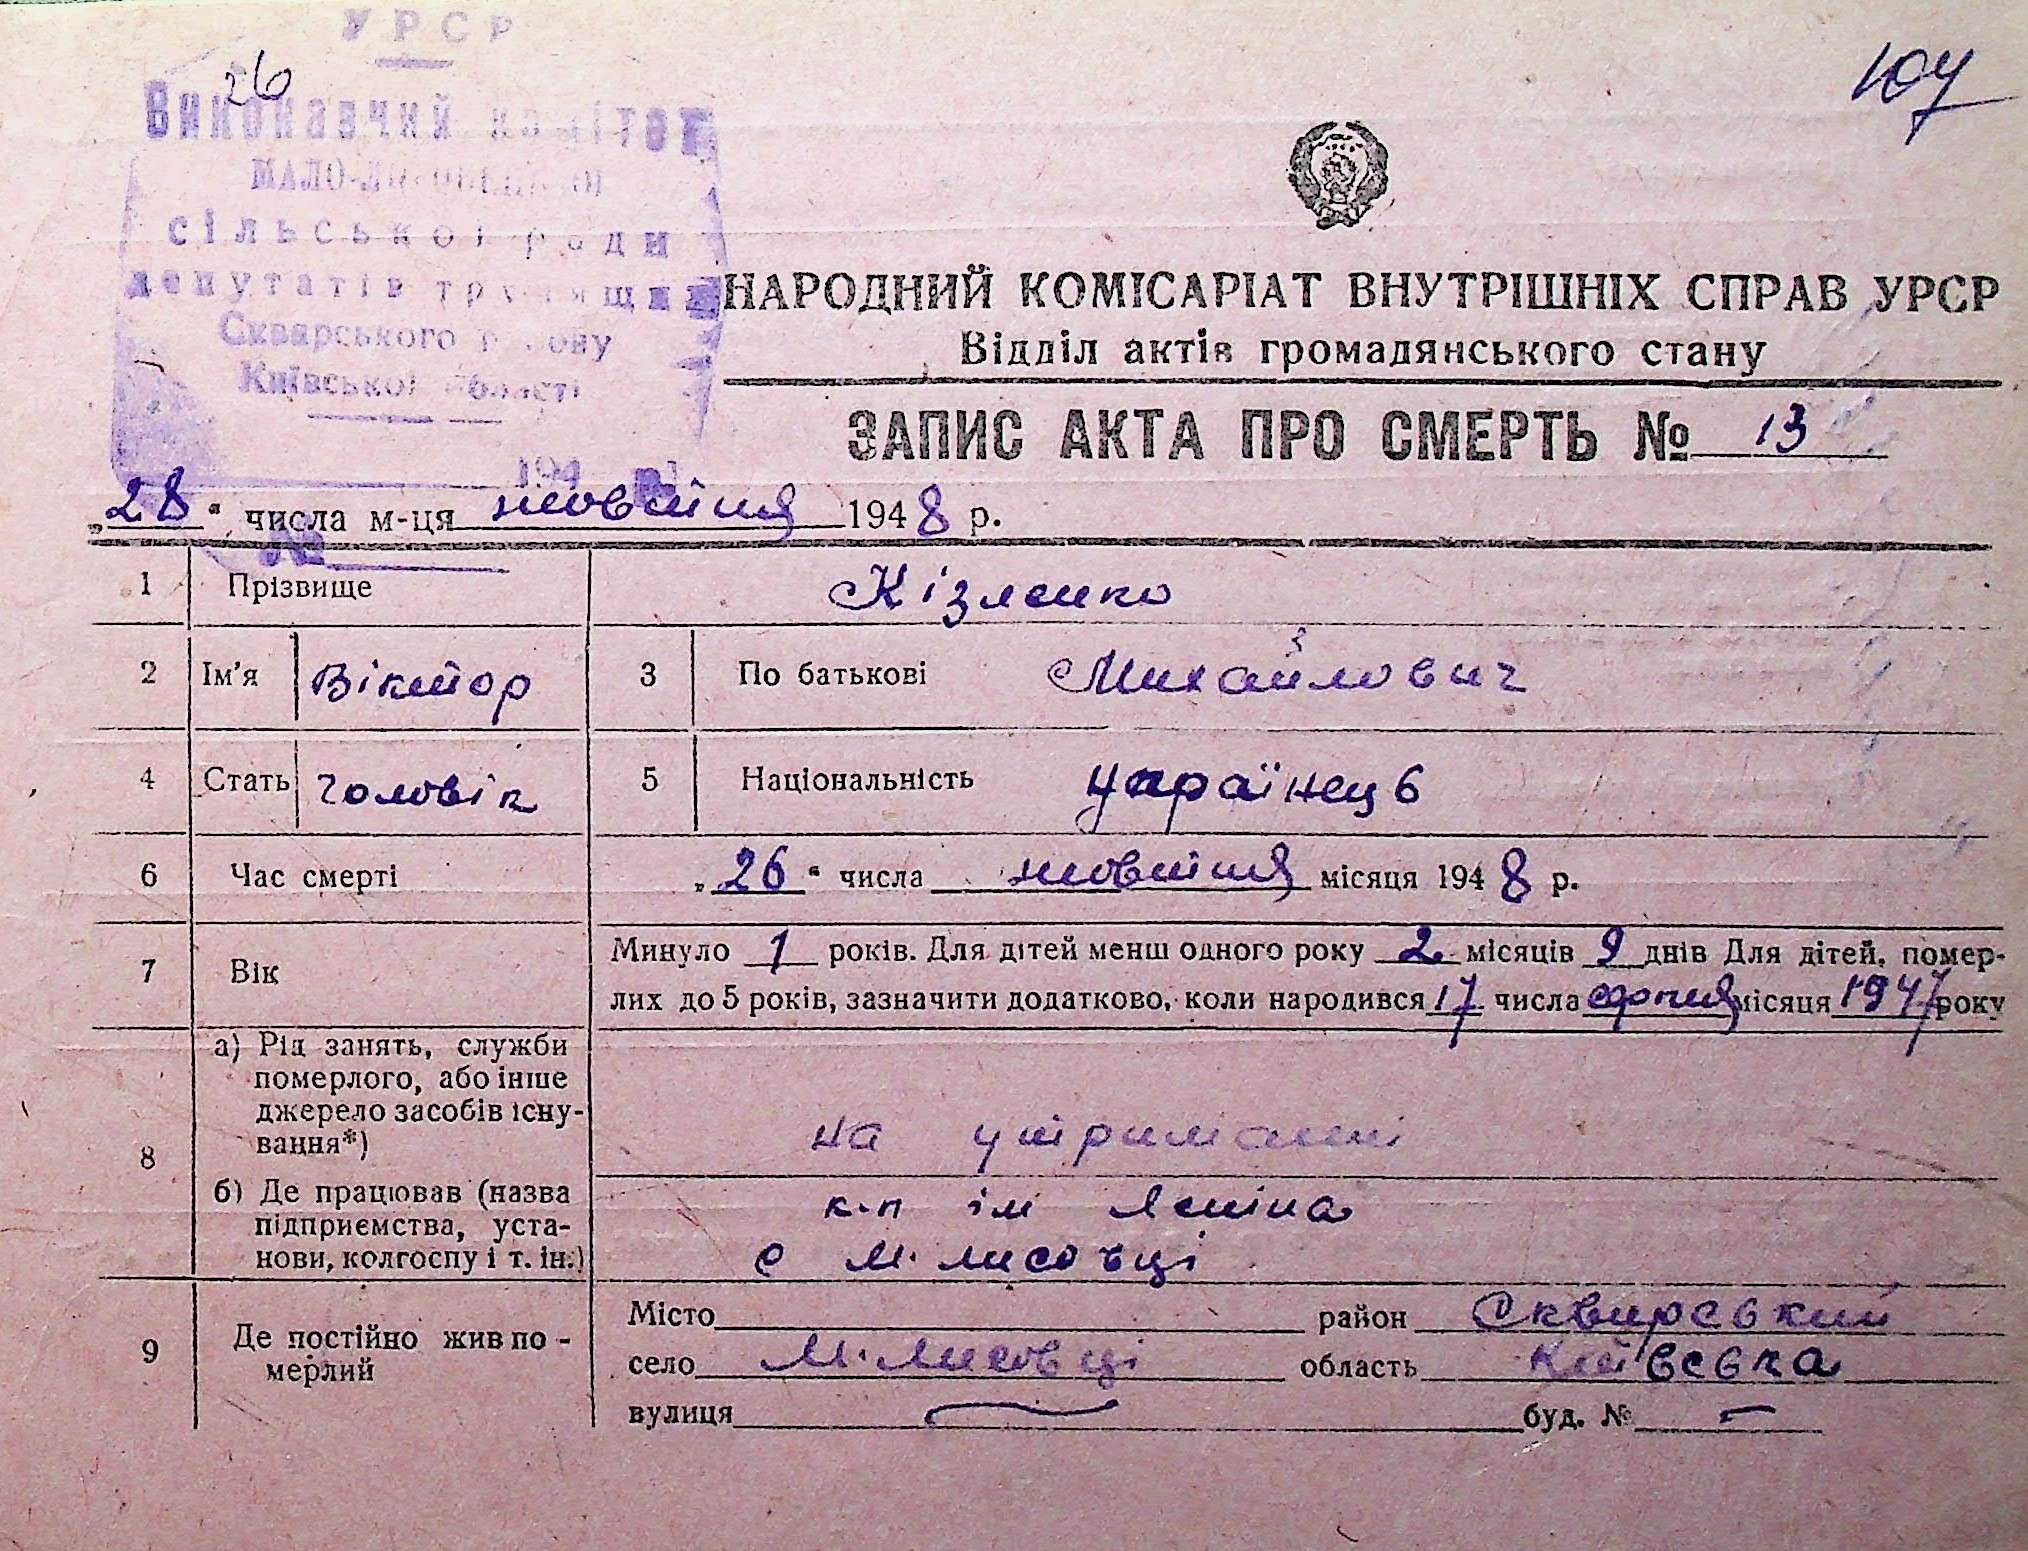 УРСР
26
107
Виконавчий комітет
МАЛО-
сільської ради
депутатів трудящих
Сквирського району
Київської області
194 р.
№
НАРОДНИЙ КОМІСАРІАТ ВНУТРІШНІХ СПРАВ УРСР
Відділ актів громадянського стану
ЗАПИС АКТА ПРО СМЕРТЬ № 13
„28“ числа м-ця жовтня 1948 р.
1 Прізвище Кізленко
2 Ім'я Віктор 3 По батькові Михайлович
4 Стать чоловік 5 Національність українець
6 Час смерті „26“ числа жовтня місяця 1948 р.
7 Вік Минуло 1 років. Для дітей менш одного року 2 місяців 9 днів Для дітей, помер-
лих до 5 років, зазначити додатково, коли народився 17 числа серпня місяця 1947 року
8 а) Рід занять, служби
померлого, або інше
джерело засобів існу-
вання*) на утриманні
б) Де працював (назва к-п ім Леніна
підприємства, уста-
нови, колгоспу і т. ін.) с М. Лисовці
9 Де постійно жив по-
мерлий
Місто район Сквирський
село М. Лисовці область Київська
вулиця — буд. № —